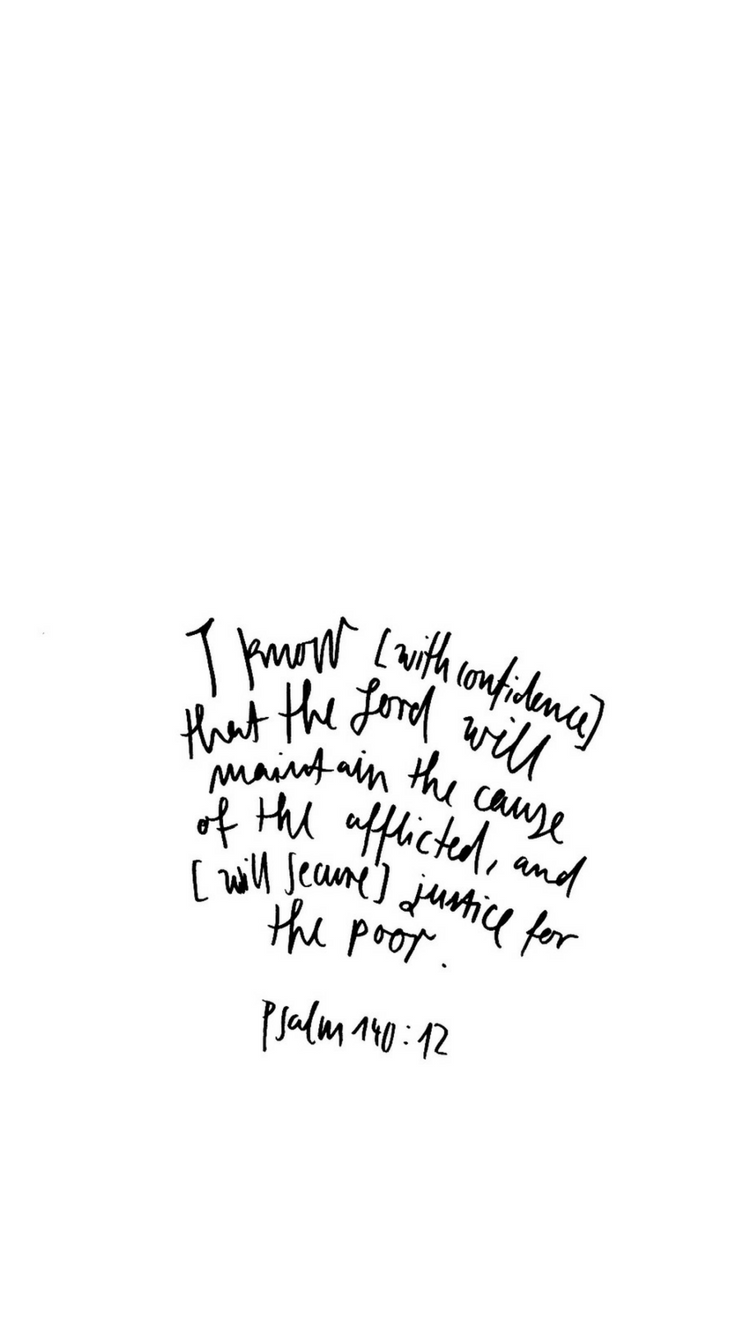 I know [with confidence]
that the Lord will
maintain the cause
of the afflicted, and
[will secure] justice for
the poor.
Psalm 140:12